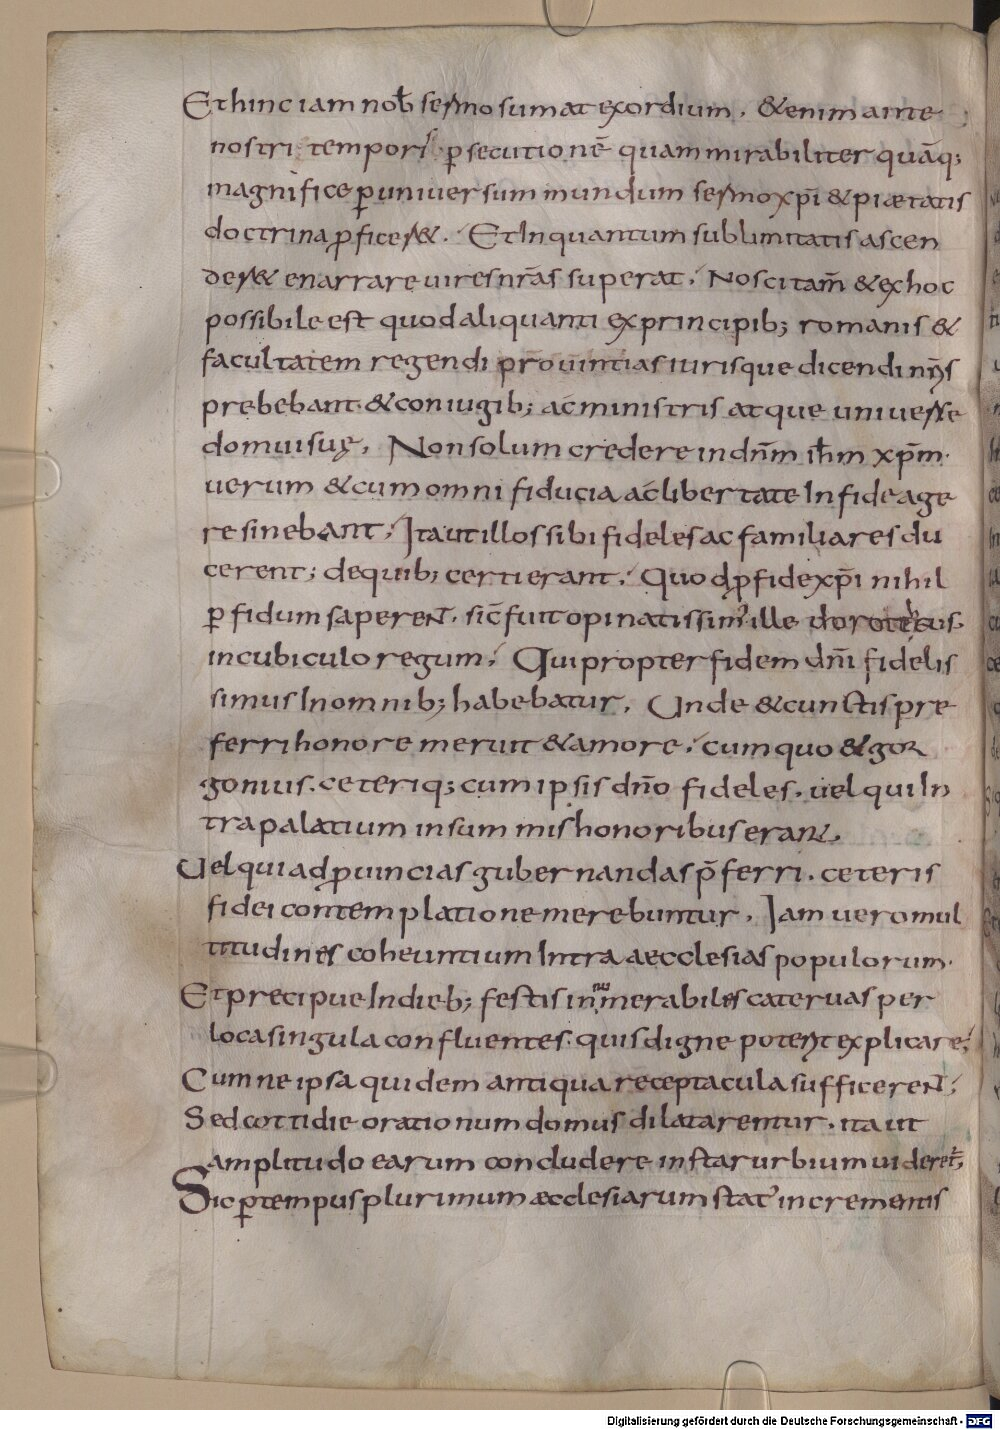 Et hinc iam nob̅ sermo sumat exordium. &enim ante
nostri temporis p̲secutionē quam mirabiliter quāq;
magnifice p̲ uniuersum mundum sermo xp̄i & piætatis
doctrina p̲ficer&. Et In quantum sublimitatis ascen
der& enarrare uires nr̄as superat. Nosci tam̄ & ex hoc
possibile est quod aliquanti ex principib; romanis &
facultatem regendi prouintias iurisque dicendi nr̄is
prebebant. & coniugib; ac ministris atque uniuerse
domui suę. Non solum credere in dn̄m ih̄m xp̄m.
uerum & cum omni fiducia ac libertate In fide age
re sinebant. Ita ut illos sibi fideles ac familiares du
cerent; de quib; certi erant. Quod p̲ fide xp̄i nihil
p̲fidum saperent. sic fuit opinatissim' ille doroteus.
in cubiculo regum. Qui propter fidem dn̄i fidelis
simus In omnib; habebatur. Unde & cunctis pre
ferri honore meruit & amore. cum quo & gor
gonius. ceteriq; cum ipsis dn̄o fideles. uel qui In
tra palatium in summis honoribus erant.
Uel qui ad p̲uincias gubernandas p̄ferri. ceteris
fidei contemplatione merebuntur. Iam uero mul
titudines coheuntium Intra aecclesias populorum.
Et precipue In dieb; festis innumerabiles cateruas per
loca singula confluentes. quis digne potent explicare;
Cum ne ipsa quidem antiqua receptacula sufficerent;
Sed cottidie orationum domus dilatarentur. ita ut
amplitudo earum concludere instar urbium uideret̄;
Sic p̲ tempus plurimum æcclesiarum stat' incrementis
Digitalisierung gefördert durch die Deutsche Forschungsgemeinschaft - DFG